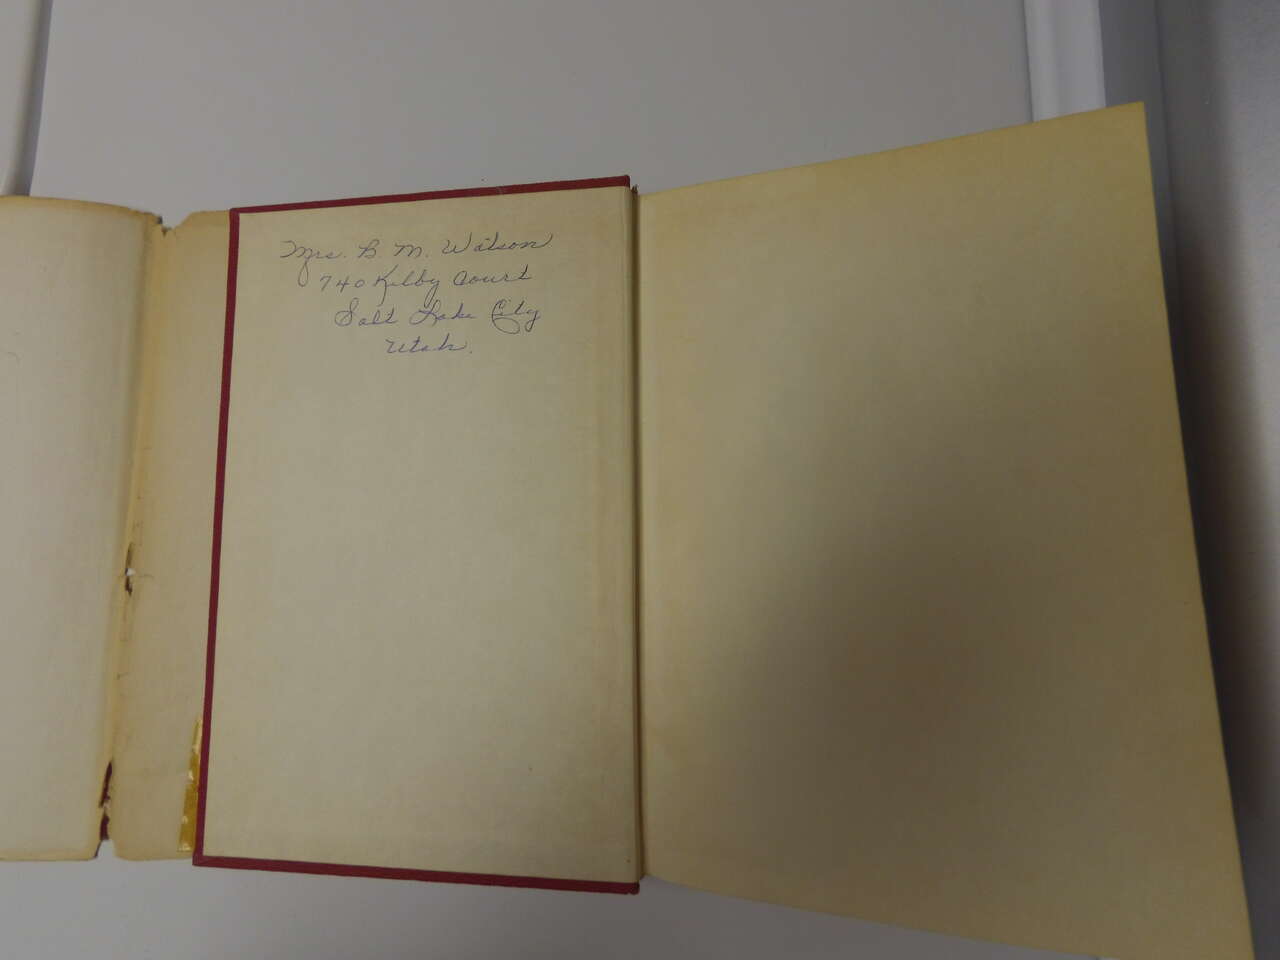 Mrs. B. M. Watson
740 Kilby Court
Salt Lake City
Utah.